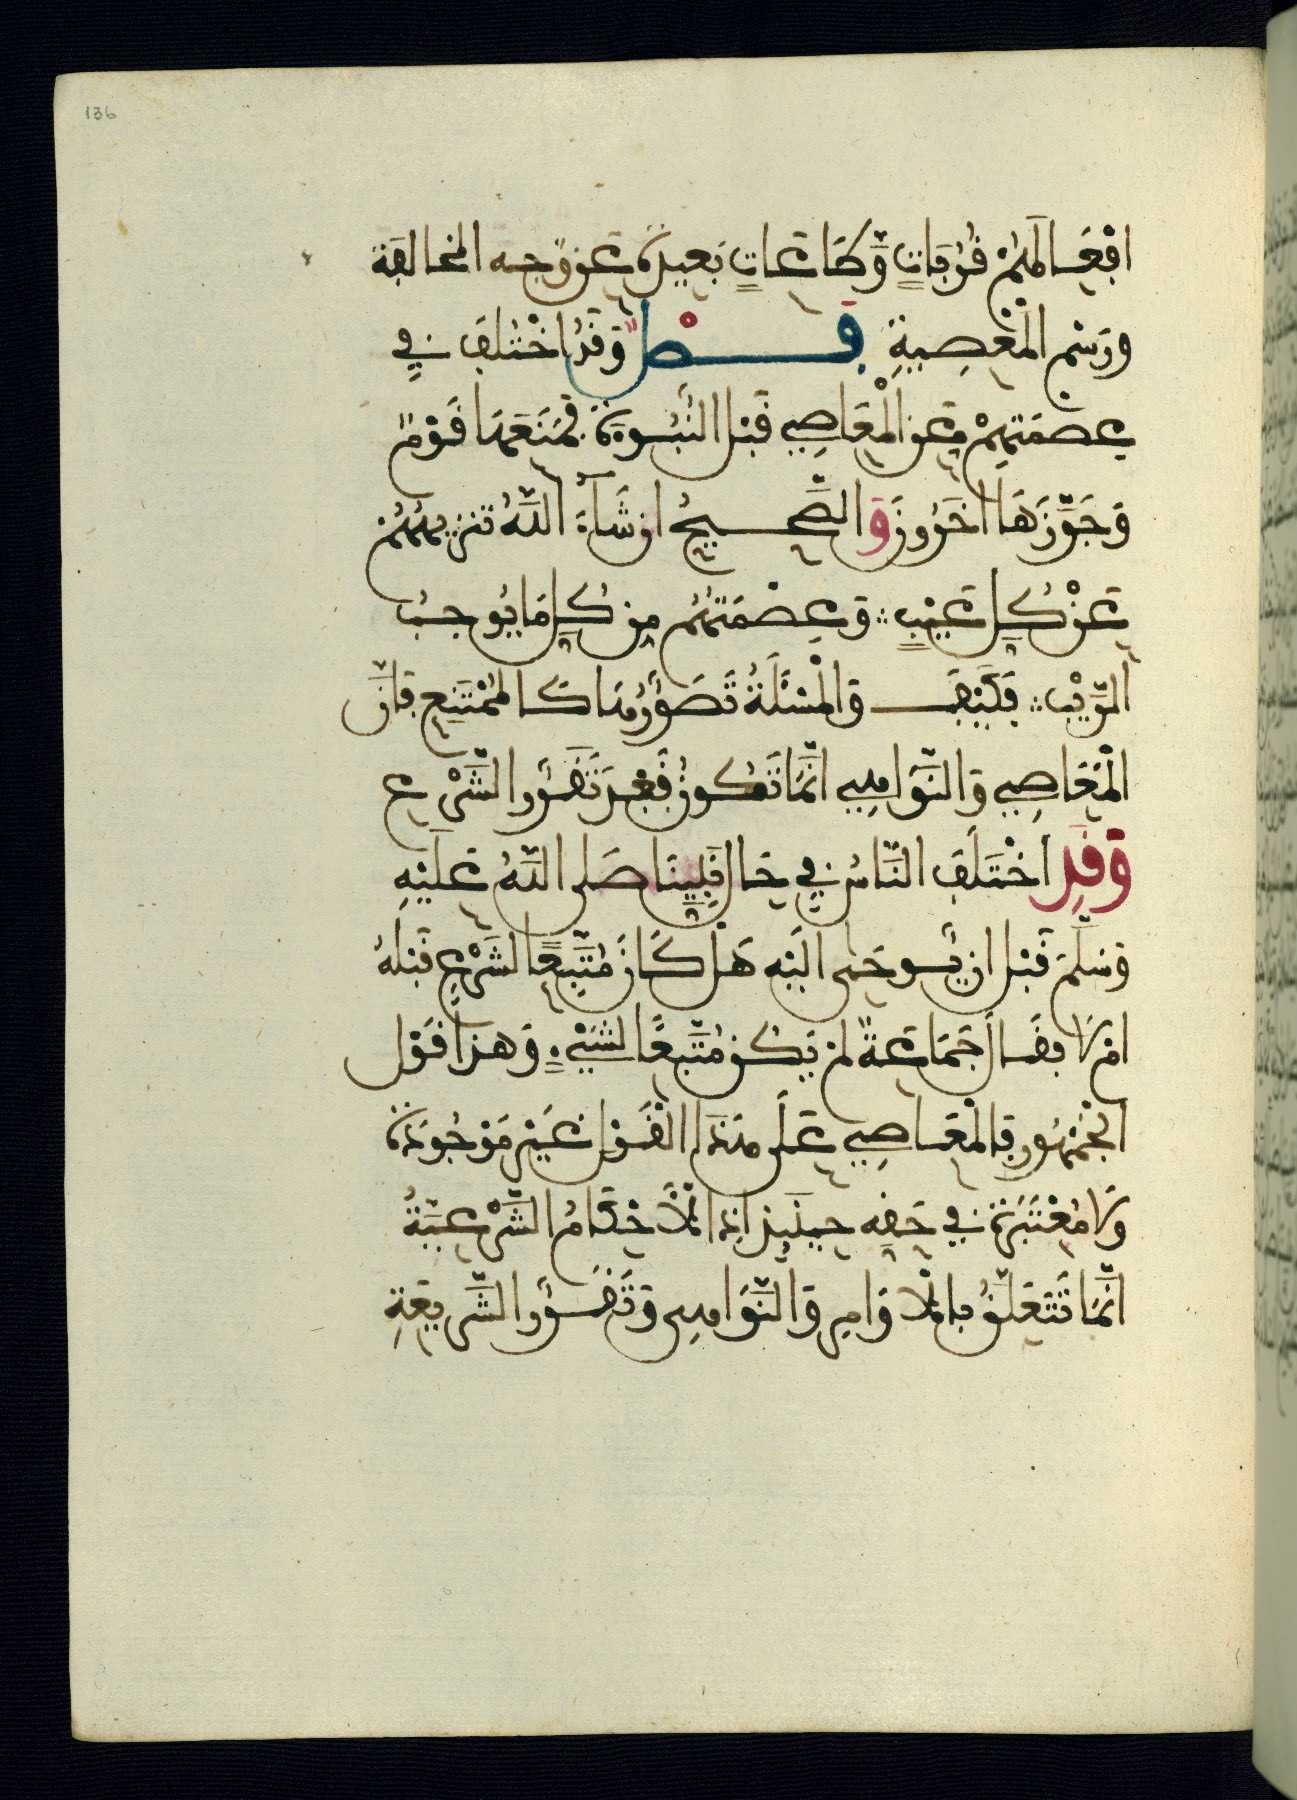 136
افْعَالَهُمْ قُرُبَاتٍ وَّطَاعَاتٍ بَعِيدَةً عَن وَّجْه المخالفة
ورَسْمِ الْمَعْصِيَةِ فَصْل وَقَدُ اخْتُلِفَ فِي
عِصْمَتِهِمْ مِّنَ الْمَعَاصِي قَبْل النُّبُوءَةِ فَمَنَعَهَا قَوْمٌ
وَجَوَّزَهَا اخَرُونَ وَالصَّحِيحُ ان شَآءَ اللَّهُ تنزيهُهُمْ
عَنْ كُلِّ عَيْبٍ وَعِصْمَتُهُمْ مِن كُلِّ مَا يُوجبُ
الرَّيْبَ فَكَيْفَ وَالْمَسْئَلَةُ تَصَوُّرُهَا كَالْمُمْتَنِعِ فَإنَّ
الْمَعَاصِي وَالنَّوَاهِي انَّمَا تَكُونُ بَعْدَ تَقَرُّرِ الشَّرْعِ
وَقَدِ اخْتَلَفَ النَّاسُ فِي حَالِ نَبِيِّنَا صَلى اللَّهُ عَلَيْهِ
وَسَلَّمَ قَبْل ان يُّوحَى الَيْهِ هَلْ كَانَ مُتَّبِعًا لشَرْعٍ قَبْلهُ
امْ لَا فقَالَ جَمَاعَةٌ لَمْ يَكُن مُتَّبِعًا لشَيْءٍ وَهذَا قَوْل
الْجُمْهُورِ فَالْمَعَاصِي عَلَى هَذَا الْقَوْلِ غَيْر مَوْجُودَةٍ
وَلَا مُعْتَبَرَةٍ فِي حَقِّهِ حِينَئِذ اذ الْأَحْكَامُ الشَّرْعيَّةُ
انَّمَا تَتَعَلَّقُ بالْأَوَامِرِ وَالنَّوَاهِي وَتَقَرُّرِ الشَّرِيعَةِ